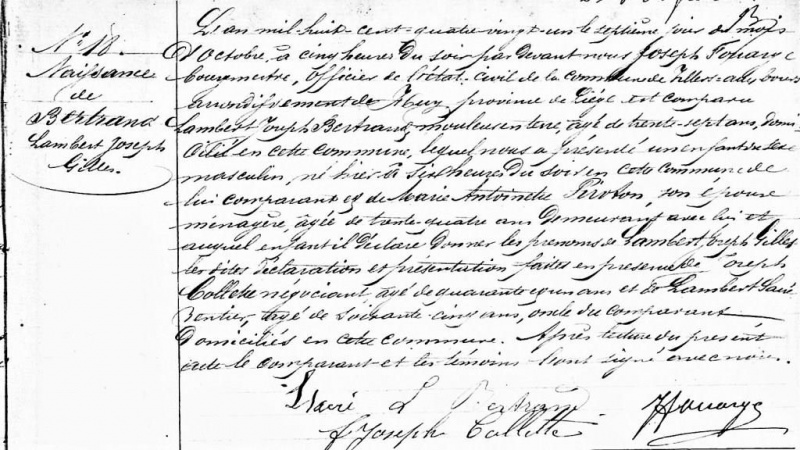 N° 40.
Naissance
de
Bertrand
Lambert Joseph
Gilles.
L'an mil huit cent quatre vingt un le septième jour du Mois
d'Octobre, à cinq heures du soir par devant nous Joseph
bourgmestre, Officier de l'état civil de la Commune de Villers-aux-Tours
arrondissement de Huy, province de Liège est comparu
Lambert Joseph Bertrand, mouleur en terre, âgé de trente-sept ans, domi-
cilié en cette commune, lequel nous a présenté un enfant du sexe
masculin, né hier à six heures du soir en cette commune de
lui comparant et de Marie Antoinette Piroton, son épouse
ménagère, âgée de trente-quatre ans demeurant avec lui et
auquel enfant il déclare donner les prénoms de Lambert Joseph Gilles
les dites déclaration et présentation faites en présence de Joseph
Collette négociant, âgé de quarante et un ans et de Lambert
rentier, âgé de soixante cinq ans, oncle du comparant
domiciliés en cette commune. Après lecture du présent
acte le comparant et les témoins l'ont signé avec nous.
L Bertrand
Joseph Collette